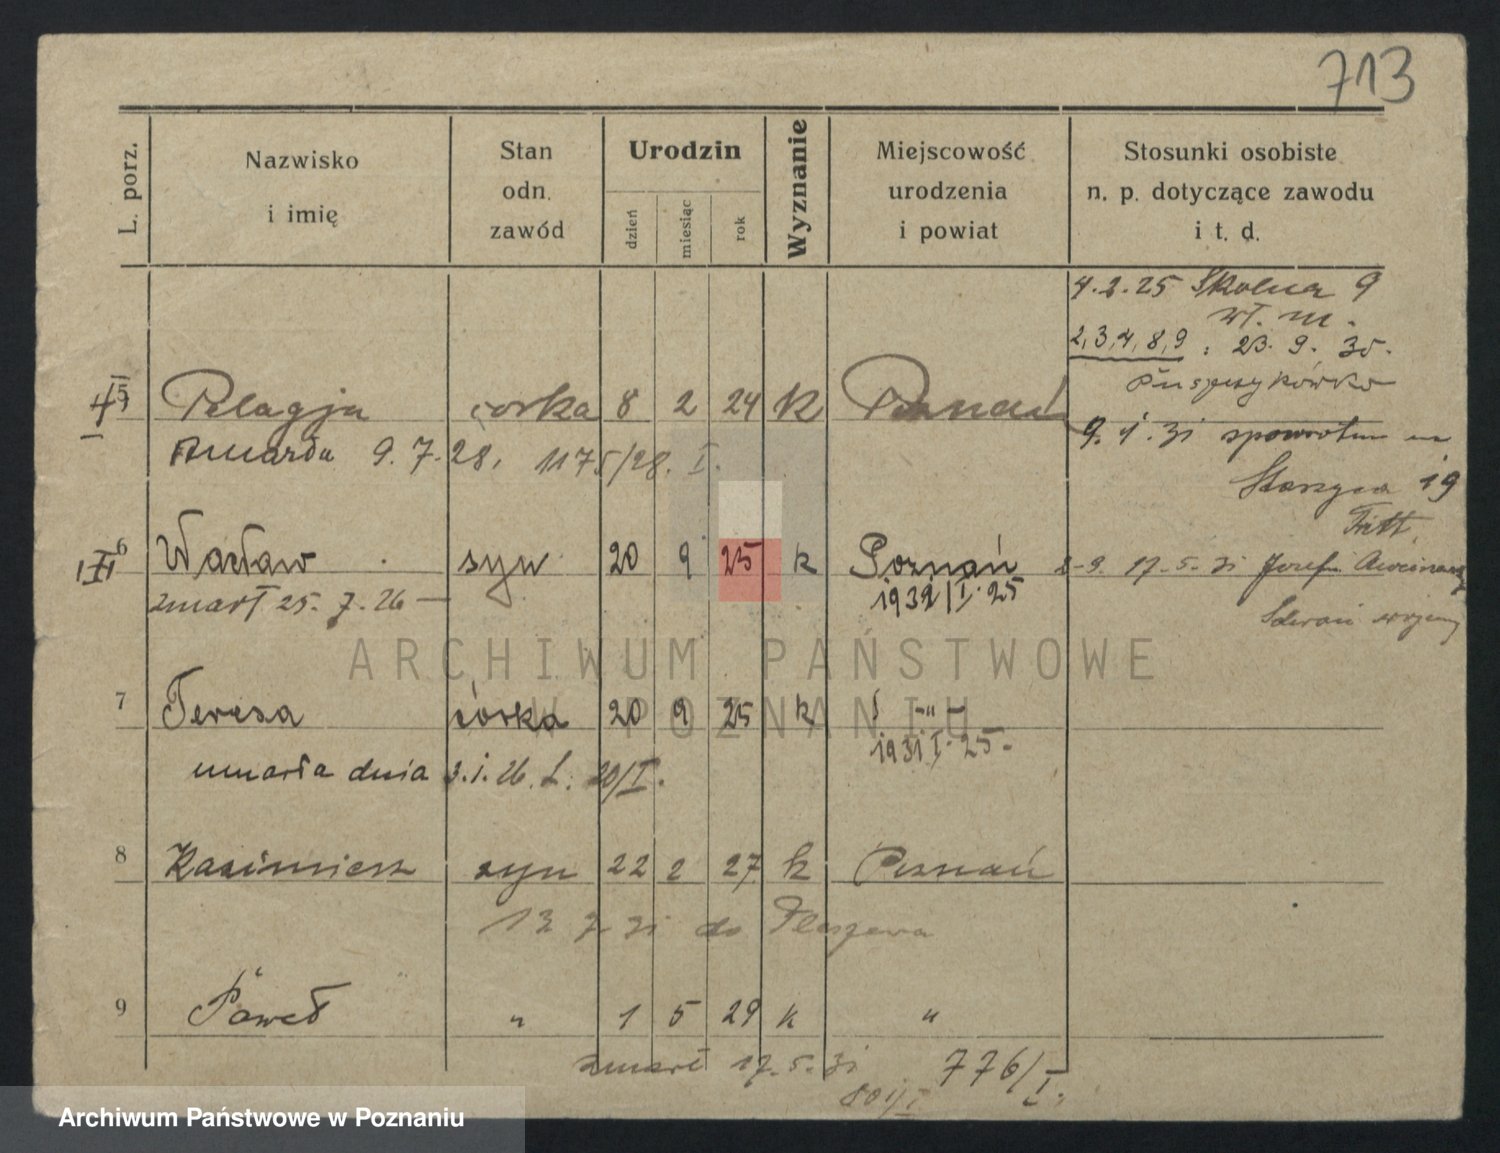 713
L. porz.
Nazwisko
i imię
Stan
odn.
zawód
Urodzin
dzień
miesiąc
rok
Wyznanie
Miejscowość
urodzenia
i powiat
Stosunki osobiste
n. p. dotyczące zawodu
i t. d.
4.2.25 Skolna 9
wł. m.
2,3,4,8,9 : 23. 9. 30.
5 Pelagja córka 8 2 24 k Poznań
9. 1. 31 spowrotem
umarła 9. 7. 28. 1175/28. I.
19
6 Wacław syn 20 9 25 k Poznań
17. 5. 31 Józef
zmarł 25. 7. 26 —
1932/I. 25
ARCHIWUM PAŃSTWOWE
W POZNANIU
7 Teresa córka 20 9 25 k -"-
1931 I. 25.
umarła dnia 3.1.26. L. 20/I.
8 Kazimierz syn 22 2 27 k Poznań
13 7 31 do Pleszewa
9 Paweł " 1 5 29 k "
zmarł 17. 5. 31 776/I.
801/I
Archiwum Państwowe w Poznaniu